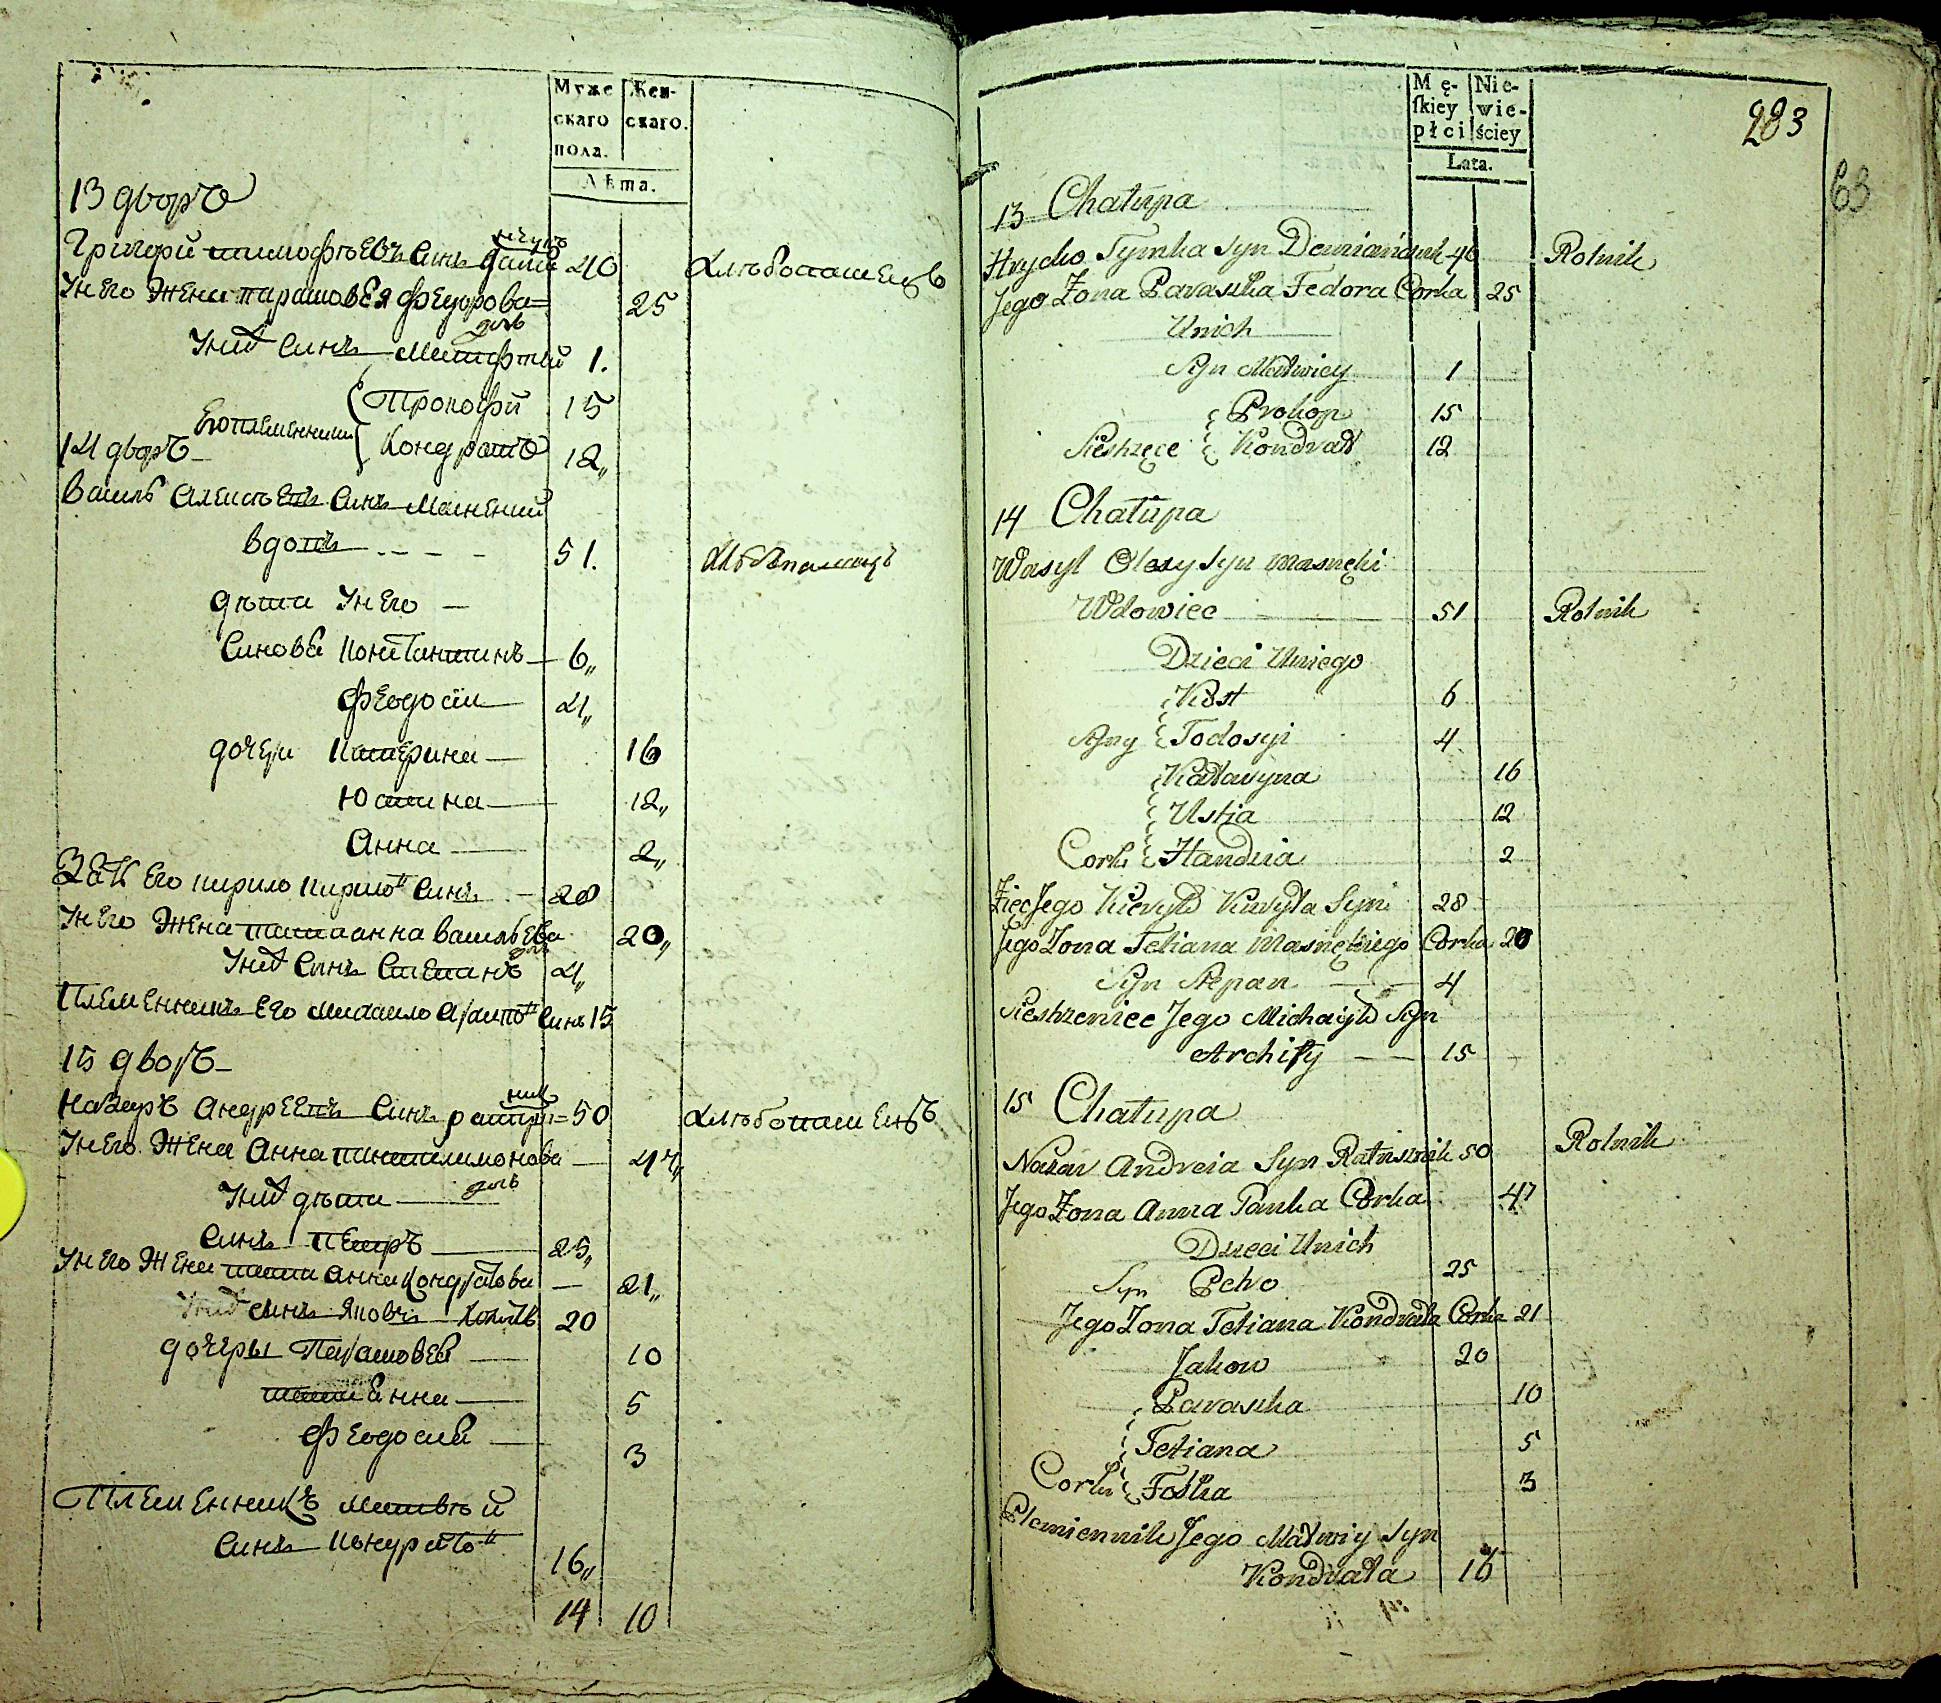 Муже
скаго
пола.
Жен-
скаго.
Лѣта.
13 дворъ
Григори Тимофѣевъ Синъ 40 Хлѣбопашецъ
Унего Жена Парасковея Федорова 25
дочь
Унихъ Синъ Матфѣй 1.
Прокофи 15
Егоплеменники
Кондратъ 12„
14 дворъ
Василь Синъ
вдовъ 51. Хлѣбопашецъ
дѣти Унего
Синовя Константинъ 6„
Феодоси 4„
дочери Катерина 16
Юстина 12„
Анна 2„
Зять Его Кирило Кирило Синъ 28
Унего Жена Татианна Васильева 20„
дочь
Унихъ Синъ Степанъ 4„
Племенникъ Его Михаило Архипо Синъ 15
15 дворъ
Назаръ Андреевъ Синъ 50 Хлѣбопашецъ
Унего Жена Анна Пантилимонова 47„
дочь
Унихъ дѣти
Синъ Петръ 25„
Унего Жена Татианна Кондратова 21„
Унихъ синъ Яковъ 20
дочеры Парасковея 10
Татианна 5
Феодосия 3
Племенникъ Матвѣй
Синъ Кондрато 16„
14 10
Mę-
ſkiey
płci
Nie-
wie-
ściey
Lata.
283
63
13 Chałupa
Hrycko Tymka Syn Demianiuk 40 Rolnik
Jego Żona Paraszka Fedora Corka 25
Unich
Syn Matwiey 1
Prokop 15
Siestrzęce Kondrat 12
14 Chałupa
Wasyl Olexy Syn Masnęki
Wdowiec 51 Rolnik
Dzieci Uniego
Kost 6
Syny Todosyi 4
Katarzyna 16
Ustia 12
Corki Handzia 2
Zięc Jego Kiryło Kiryła Syn 28
Jego Żona Tetiana Masnękiego Corka 20
Syn Stepan 4
Siestrzeniec Jego Michayło Syn
Archipy 15
15 Chałupa
Nazar Andreia Syn Ratusznik 50 Rolnik
Jego Żona Anna Pańka Corka 47
Dzieci Unich
Syn Petro 25
Jego Żona Tetiana Kondrata Corka 21
Jakow 20
Paraszka 10
Tetiana 5
Corki Foska 3
Plemiennik Jego Matwiy Syn
Kondrata 16